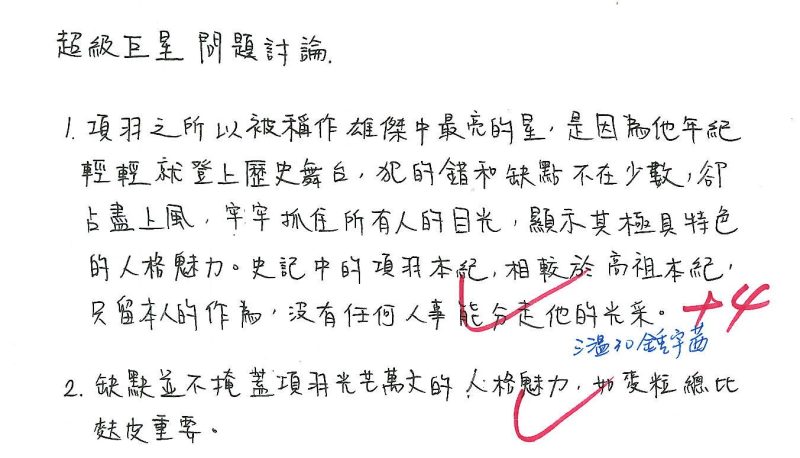 超級巨星 問題討論.
1. 項羽之所以被稱作雄傑中最亮的星，是因為他年紀
輕輕就登上歷史舞台，犯的錯和缺點不在少數，卻
占盡上風，牢牢抓住所有人的目光，顯示其極具特色
的人格魅力。史記中的項羽本紀，相較於高祖本紀，
只留本人的作為，沒有任何人事能分走他的光采。 +4
溫和 鍾宇茜
2. 缺點並不掩蓋項羽光芒萬丈的人格魅力，如麥粒總比
麩皮重要。